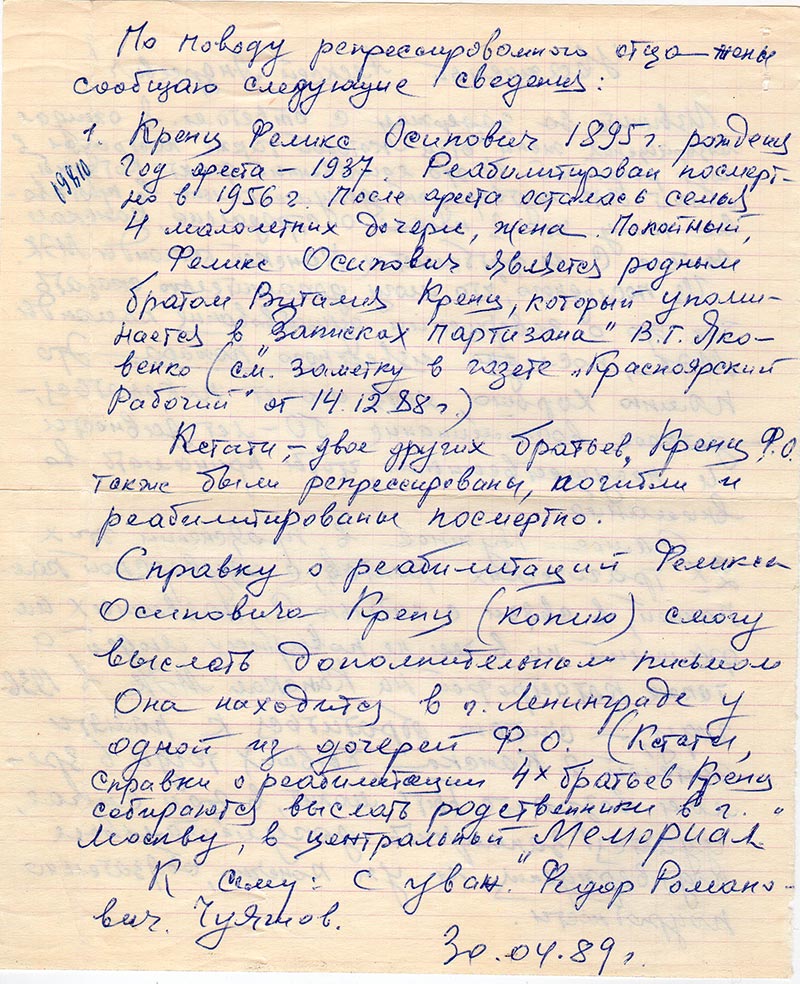 По поводу репрессированного отца жены
сообщаю следующие сведения:
1. Кренц Феликс Осипович 1895 г. рождения
Год ареста – 1937. Реабилитирован посмерт-
но в 1956 г. После ареста осталась семья
4 малолетних дочери, жена. Покойный,
Феликс Осипович является родным
братом Виталия Кренц, который упоми-
нается в „Записках партизана" В.Г. Яко-
венко (см. заметку в газете „Красноярский
Рабочий" от 14.12.88 г.)
Кстати, – двое других братьев Кренц Ф.О.
также были репрессированы, погибли и
реабилитированы посмертно.
Справку о реабилитаций Феликса
Осиповича Кренц (копию) смогу
выслать дополнительным письмом
Она находится в г. Ленинграде у
одной из дочерей Ф.О. (Кстати,
справки о реабилитации 4х братьев Кренц
собираются выслать родственники в г.
Москву, в центральный „Мемориал"
К сему: с уваж. Федор Романо-
вич
30.04.89 г.